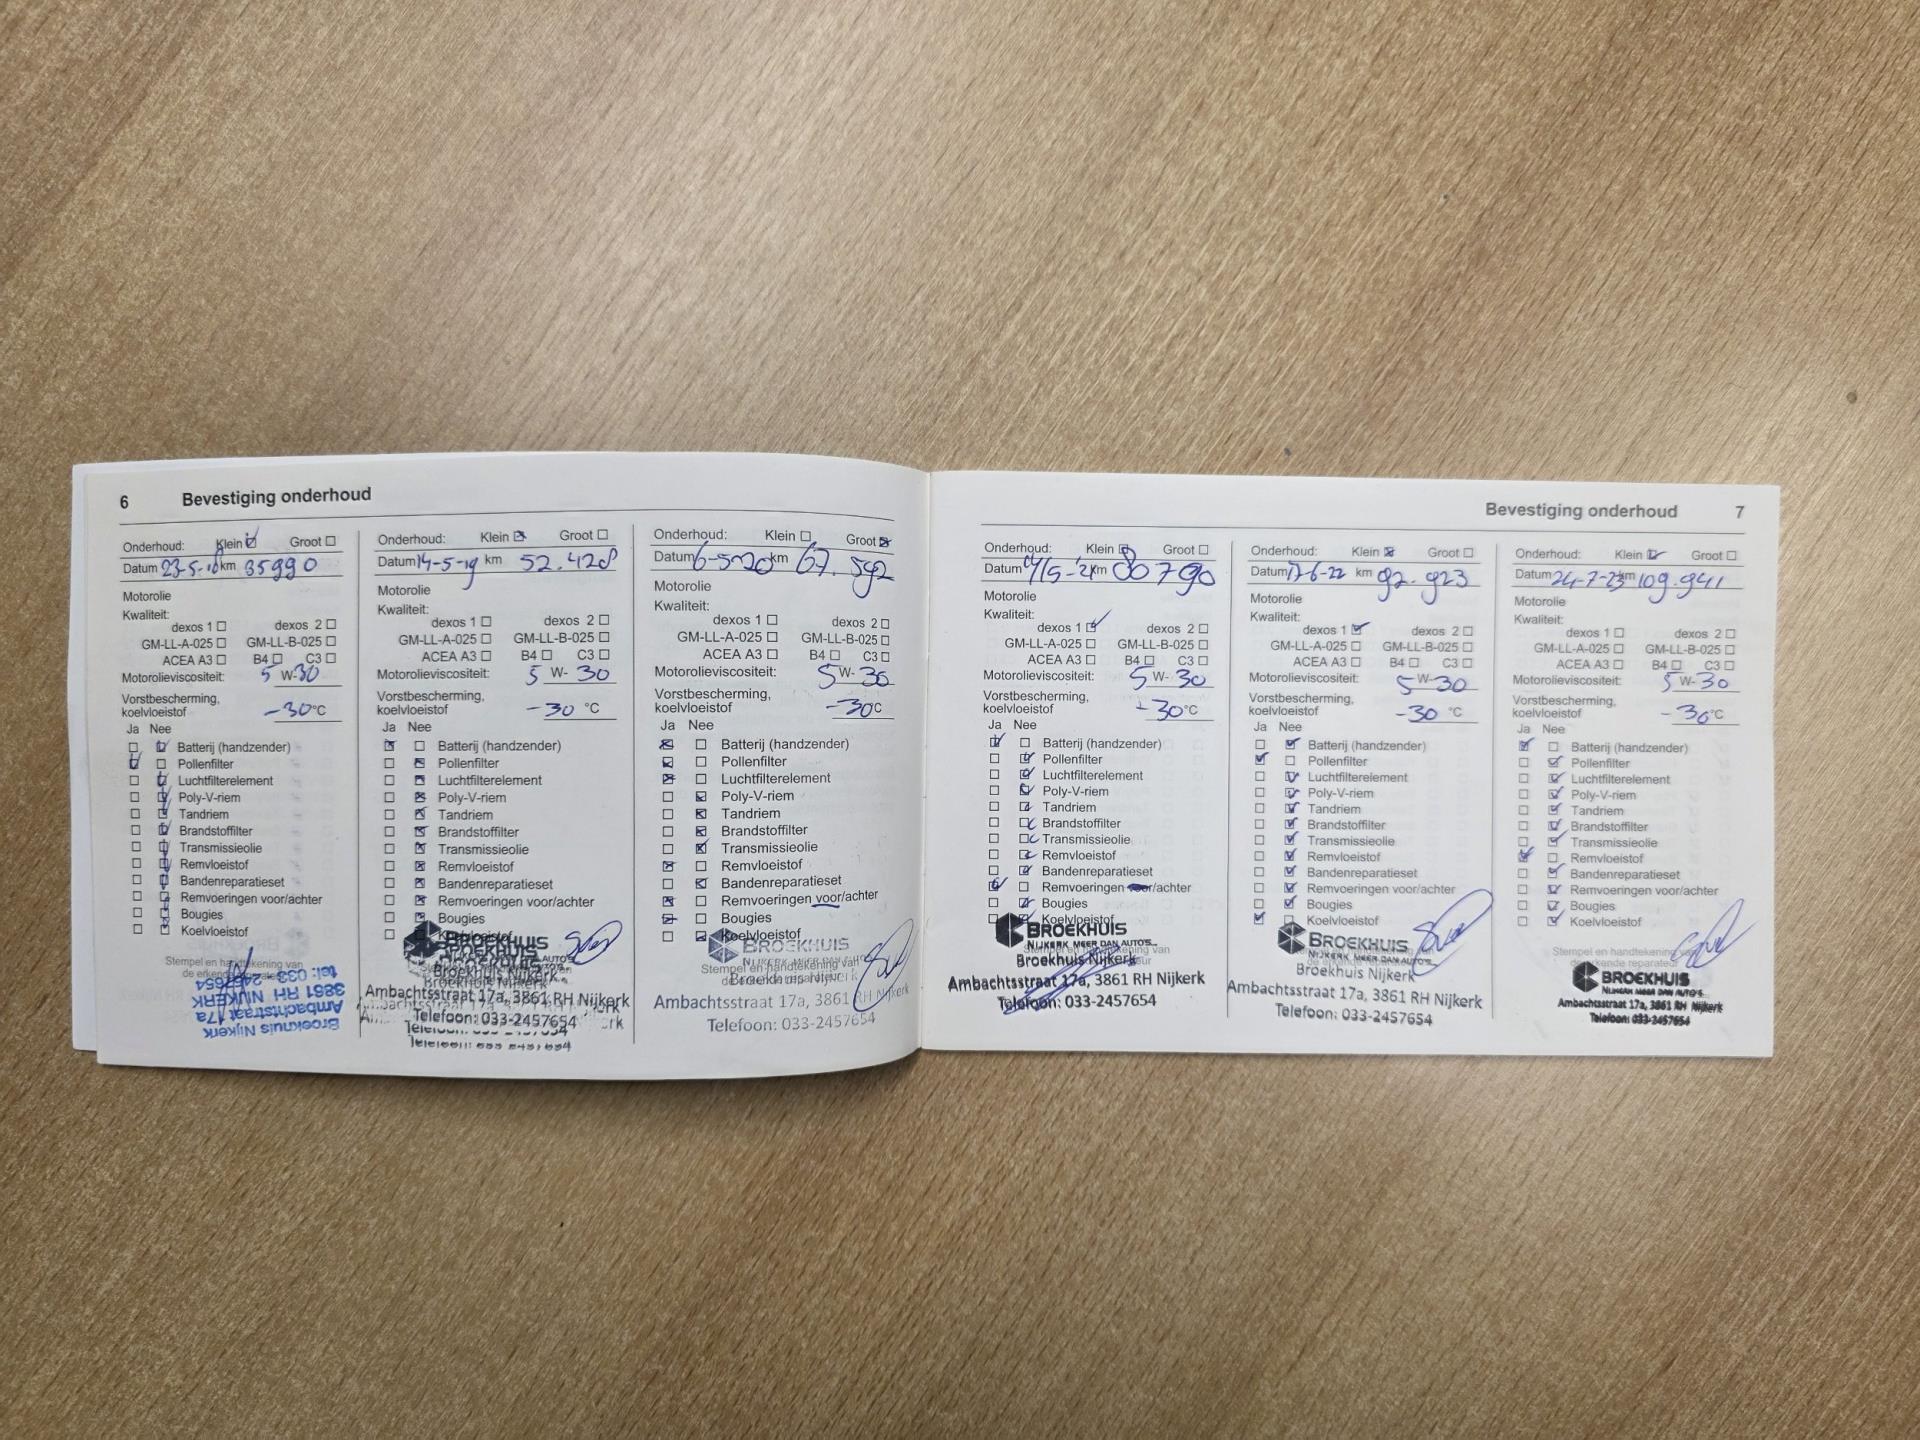 6 Bevestiging onderhoud
Onderhoud: Klein Groot
Datum 23-5-18 km 35990
Motorolie
Kwaliteit:
dexos 1 dexos 2
GM-LL-A-025 GM-LL-B-025
ACEA A3 B4 C3
Motorolieviscositeit: 5 W-30
Vorstbescherming,
koelvloeistof -30°C
Ja Nee
Batterij (handzender)
Pollenfilter
Luchtfilterelement
Poly-V-riem
Tandriem
Brandstoffilter
Transmissieolie
Remvloeistof
Bandenreparatieset
Remvoeringen voor/achter
Bougies
Koelvloeistof
Stempel en handtekening van
de erkende
Broekhuis Nijkerk
Ambachtstraat 17a
3861 RH NIJKERK
tel: 033 2457654
Onderhoud: Klein Groot
Datum 14-5-19 km 52.428
Motorolie
Kwaliteit:
dexos 1 dexos 2
GM-LL-A-025 GM-LL-B-025
ACEA A3 B4 C3
Motorolieviscositeit: 5 W- 30
Vorstbescherming,
koelvloeistof -30 °C
Ja Nee
Batterij (handzender)
Pollenfilter
Luchtfilterelement
Poly-V-riem
Tandriem
Brandstoffilter
Transmissieolie
Remvloeistof
Bandenreparatieset
Remvoeringen voor/achter
Bougies
Koelvloeistof
BROEKHUIS
Broekhuis Nijkerk
Ambachtsstraat 17a, 3861 RH Nijkerk
Telefoon: 033-2457654
Onderhoud: Klein Groot
Datum 6-5-20 km 67.592
Motorolie
Kwaliteit:
dexos 1 dexos 2
GM-LL-A-025 GM-LL-B-025
ACEA A3 B4 C3
Motorolieviscositeit: 5 W- 30
Vorstbescherming,
koelvloeistof -30°C
Ja Nee
Batterij (handzender)
Pollenfilter
Luchtfilterelement
Poly-V-riem
Tandriem
Brandstoffilter
Transmissieolie
Remvloeistof
Bandenreparatieset
Remvoeringen voor/achter
Bougies
Koelvloeistof
BROEKHUIS
Stempel en handtekening van
Broekhuis Nijkerk
Ambachtsstraat 17a, 3861 RH Nijkerk
Telefoon: 033-2457654
Bevestiging onderhoud 7
Onderhoud: Klein Groot
Datum 5-21 km 80790
Motorolie
Kwaliteit:
dexos 1 dexos 2
GM-LL-A-025 GM-LL-B-025
ACEA A3 B4 C3
Motorolieviscositeit: 5 W- 30
Vorstbescherming,
koelvloeistof -30°C
Ja Nee
Batterij (handzender)
Pollenfilter
Luchtfilterelement
Poly-V-riem
Tandriem
Brandstoffilter
Transmissieolie
Remvloeistof
Bandenreparatieset
Remvoeringen voor/achter
Bougies
Koelvloeistof
BROEKHUIS
NIJKERK MEER DAN AUTO'S
Broekhuis Nijkerk
Ambachtsstraat 17a, 3861 RH Nijkerk
Telefoon: 033-2457654
Onderhoud: Klein Groot
Datum 17-6-22 km 92.923
Motorolie
Kwaliteit:
dexos 1 dexos 2
GM-LL-A-025 GM-LL-B-025
ACEA A3 B4 C3
Motorolieviscositeit: 5 W-30
Vorstbescherming,
koelvloeistof -30 °C
Ja Nee
Batterij (handzender)
Pollenfilter
Luchtfilterelement
Poly-V-riem
Tandriem
Brandstoffilter
Transmissieolie
Remvloeistof
Bandenreparatieset
Remvoeringen voor/achter
Bougies
Koelvloeistof
BROEKHUIS
NIJKERK MEER DAN AUTO'S
Broekhuis Nijkerk
Ambachtsstraat 17a, 3861 RH Nijkerk
Telefoon: 033-2457654
Onderhoud: Klein Groot
Datum 24-7-23 km 109.941
Motorolie
Kwaliteit:
dexos 1 dexos 2
GM-LL-A-025 GM-LL-B-025
ACEA A3 B4 C3
Motorolieviscositeit: 5 W- 30
Vorstbescherming,
koelvloeistof -30°C
Ja Nee
Batterij (handzender)
Pollenfilter
Luchtfilterelement
Poly-V-riem
Tandriem
Brandstoffilter
Transmissieolie
Remvloeistof
Bandenreparatieset
Remvoeringen voor/achter
Bougies
Koelvloeistof
Stempel en handtekening van
de erkende reparateur
BROEKHUIS
NIJKERK MEER DAN AUTO'S
Ambachtsstraat 17a, 3861 RH Nijkerk
Telefoon: 033-2457654